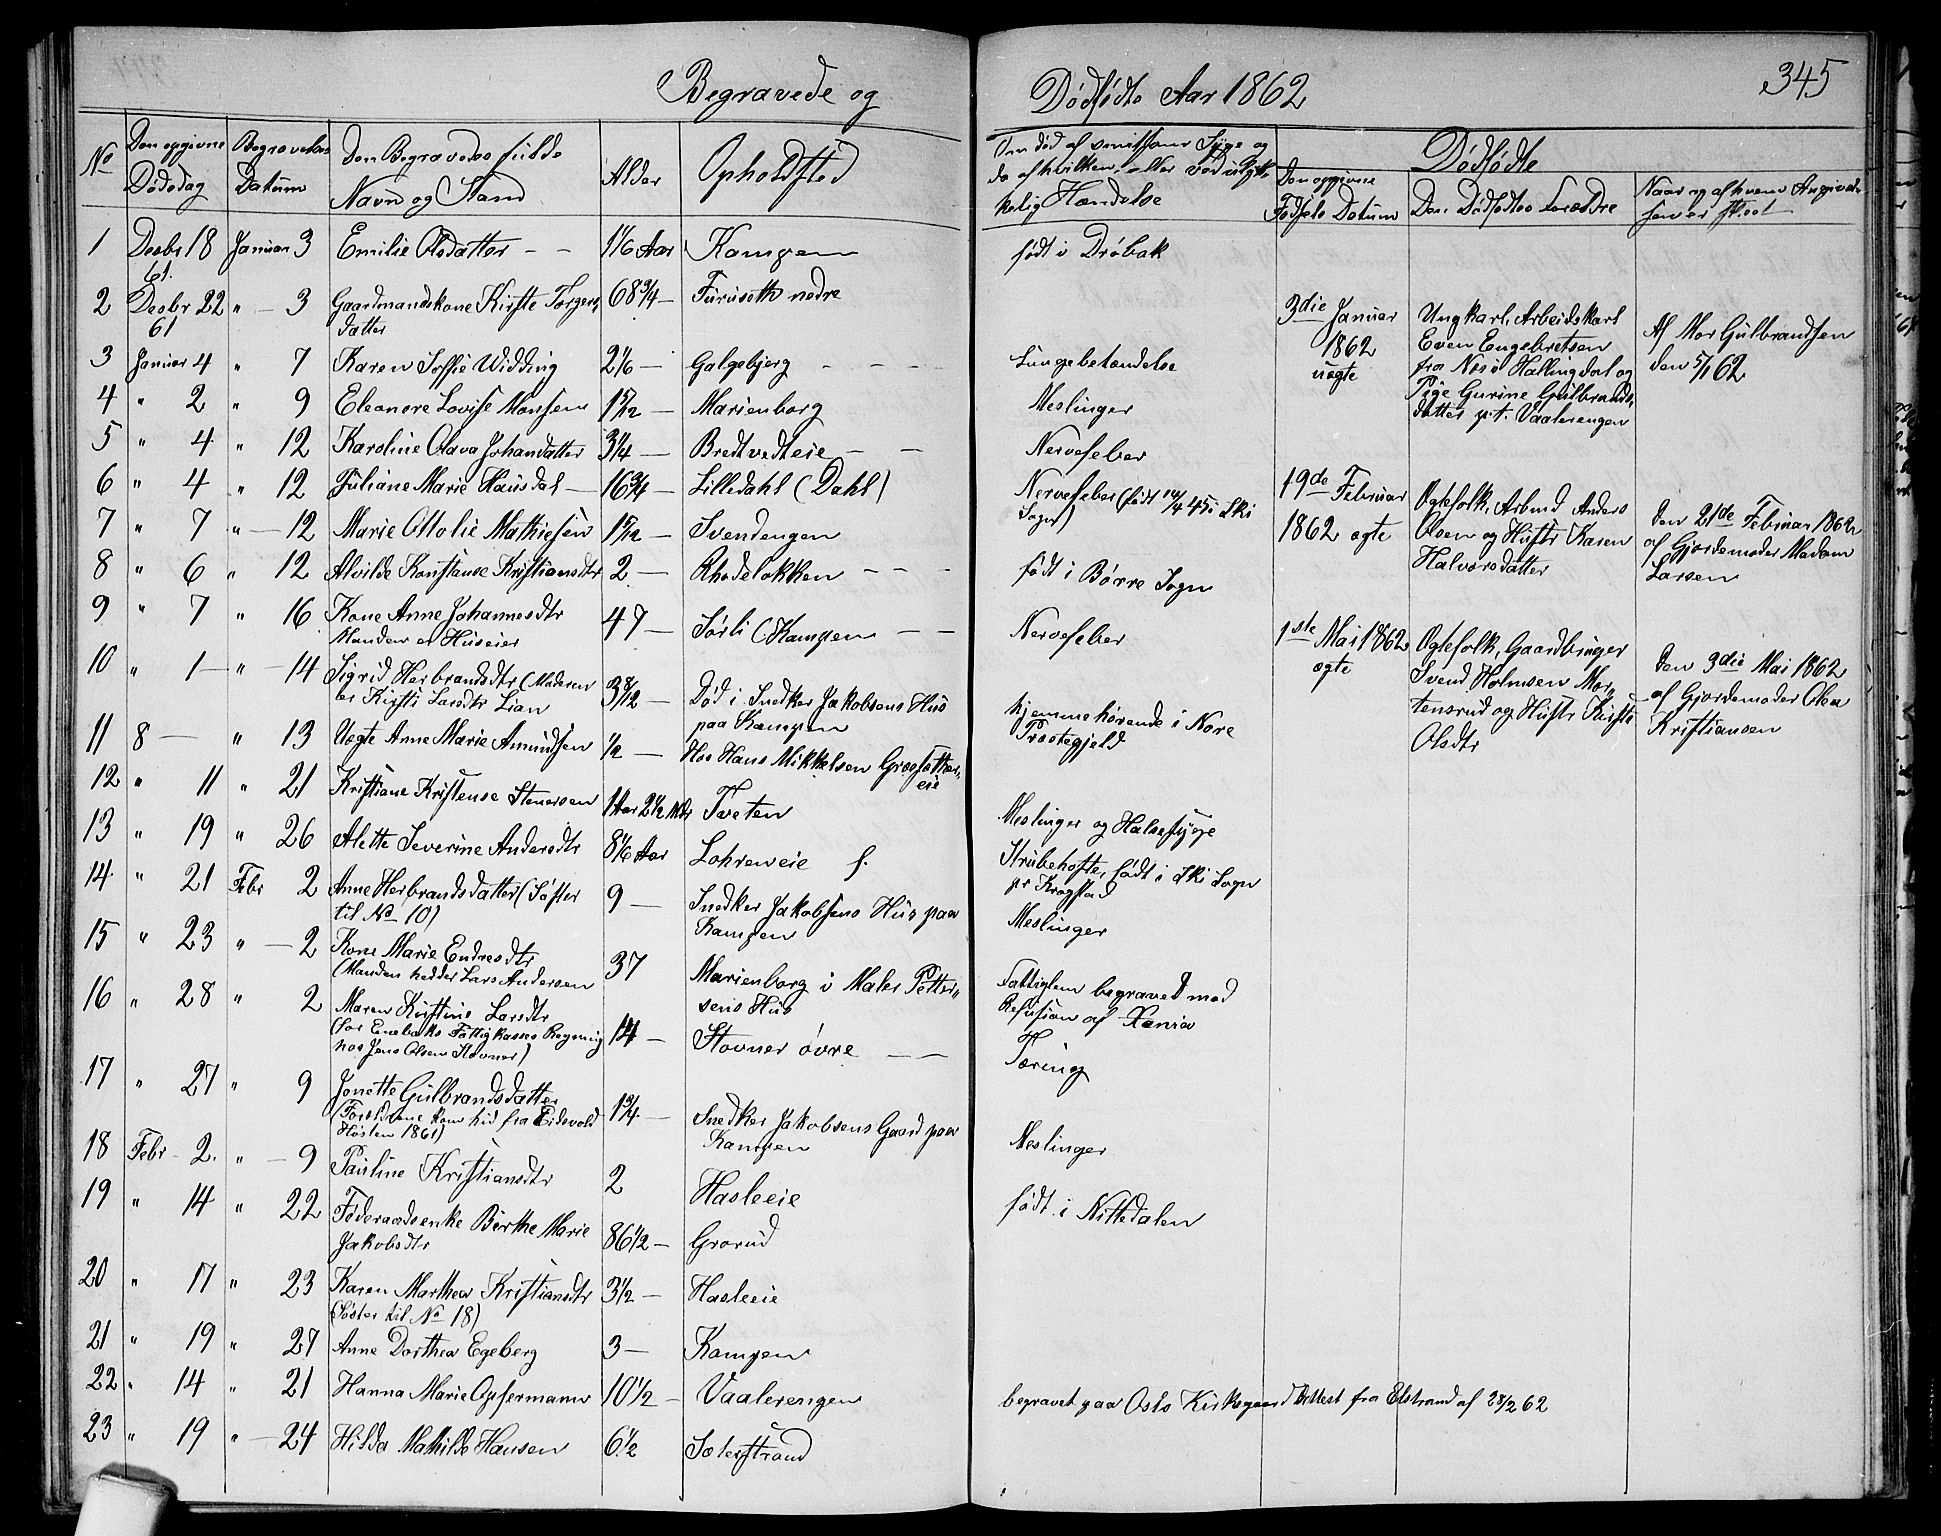 Begravede og
No
Den opgivne Dødsdag
Begravelses Datum
Den Begravedes fulde Navn og Stand
Alder
Opholdssted
1 Decbr 18 61. Januar 3 Emilie Olsdatter - - 1 1/6 Aar Kampen
2 Decbr 22 61 " - 3 Gaardmandskone Kirste Torgersdatter 68 3/4 - Furuseth nedre
3 Januar 4 " 7 Karen Soffie Widding 2 1/6 - Galgebjerg - - -
4 " 2 " 9 Eleanore Lovise Monsen 1 5/12 - Marienborg
5 " 4 " 12 Karoline Olava Johansdatter 3 1/4 - Bredtvedteie - -
6 " 4 " 12 Juliane Marie Hausdal - 16 3/4 - Lilledahl (Dahl)
7 " 7 " - 12 Marie Ottolie Mathiesen 1 5/12 - Svendengen
8 " 6 " 12 Alvilde Konstanse Kristiansdtr 2 - Rhodeløkken - - -
9 " 7 " 16 Kone Anne Johannesdtr
Manden er Huseier 47 - Sørli (Kampen - -
10 " 1 - " - 14 Sigrid Herbrandsdtr (Moderen
er Kirsti Larsdtr Lian 3 8/12 - Død i Snedker Jakobsens Hus
paa Kampen
11 8 - " 13 Uegte Anne Marie Amundsen 1/2 - Hos Hans Mikkelsen Grorsætereie
12 " 11 " 21 Kristiane Kristense Stenersen 1 Aar 2 1/2 Mdr Tveten
13 " 19 " 26 Alette Severine Andersdtr 8 1/6 Aar Lohreneie f.
14 " 21 Febr 2 Anne Herbrandsdatter (Søster
til No 10) 9 - Snedker Jakobsens Hus paa
Kampen
15 " 23 " - 2 Kone Marie Endresdtr
(Manden hedder Lars Andersen 37 Marienborg i Maler Pettersens Hus
16 " 28 " 2 Maren Kristine Larsdtr
(for Enebaks Fattigkasses Regning
hos Jens Olsen Stovner) 14 - Stovner øvre - -
17 " 27 " 9 Jonette Gulbrandsdatter
(Forældrene kom hid fra Eidsvold
Høsten 1861) 1 3/4 - Snedker Jakobsens Gaard paa
Kampen
18 Febr - 2. " - 9 Pauline Kristiansdtr 2 Hasleeie
19 " 14 " 22 Føderaadsenke Birthe Marie
Jakobsdtr 86 1/2 - Grorud
20 " 17 " 23 Karen Marthea Kristiansdtr
(Søster til No 18) 3 1/2 - Hasleeie
21 " 19 " 27 Anne Dorthea Egeberg 3 - Kampen
22 " 14 " 21 Hanna Marie Opfermann 10 1/2 - Vaalerengen
23 " 19 " - 24 Hilda Mathilde Hansen 6 1/2 Sæterstrand
Dødfødte Aar 1862
345
Om død af smitsom Syge og
da af hvilken, eller ved ulykkelig Hændelse
Dødfødte
Den opgivne Fødsels Datum
Den Dødfødtes Forældre
Naar og af hvem Angivelsen er skeet
født i Drøbak
Lungebetændelse
Meslinger
Nervefeber
Nervefeber (født 14/4 45 i Ski
Sogn)
født i Børre Sogn
Nervefeber
hjemmehørende i Nore
Præstegjeld
Meslinger og Halssyge
Strubehoste, født i Ski Sogn
pr Krogstad
Meslinger
Fattiglem begravet mod
Refusion af Xania
Tæring
Meslinger
født i Nittedalen
begravet paa Oslo Kirkegaard Attest fra Elstrand af 28/2 62
3die Januar
1862
uægte
Ungkarl, Arbeidskarl
Even Engebretsen
fra Næs i Hallingdal og
Pige Gurine Gulbrandsdatter p.t. Vaalerengen
Af Mor Gulbrandsen
den 5/1 62
19de Februar
1862 ægte
Ægtefolk, Arbmd Anders
Olsen og Hustr Karen
Halvorsdatter
Den 21de Februar 1862
af Gjordemoder Madam
Larsen
1ste Mai 1862
ægte
Ægtefolk, Gaardbruger
Svend Holmsen Mortensrud og Hustr Kirsti
Olsdtr
Den 3die Mai 1862
af Gjordemoder Olea
Kristiansen